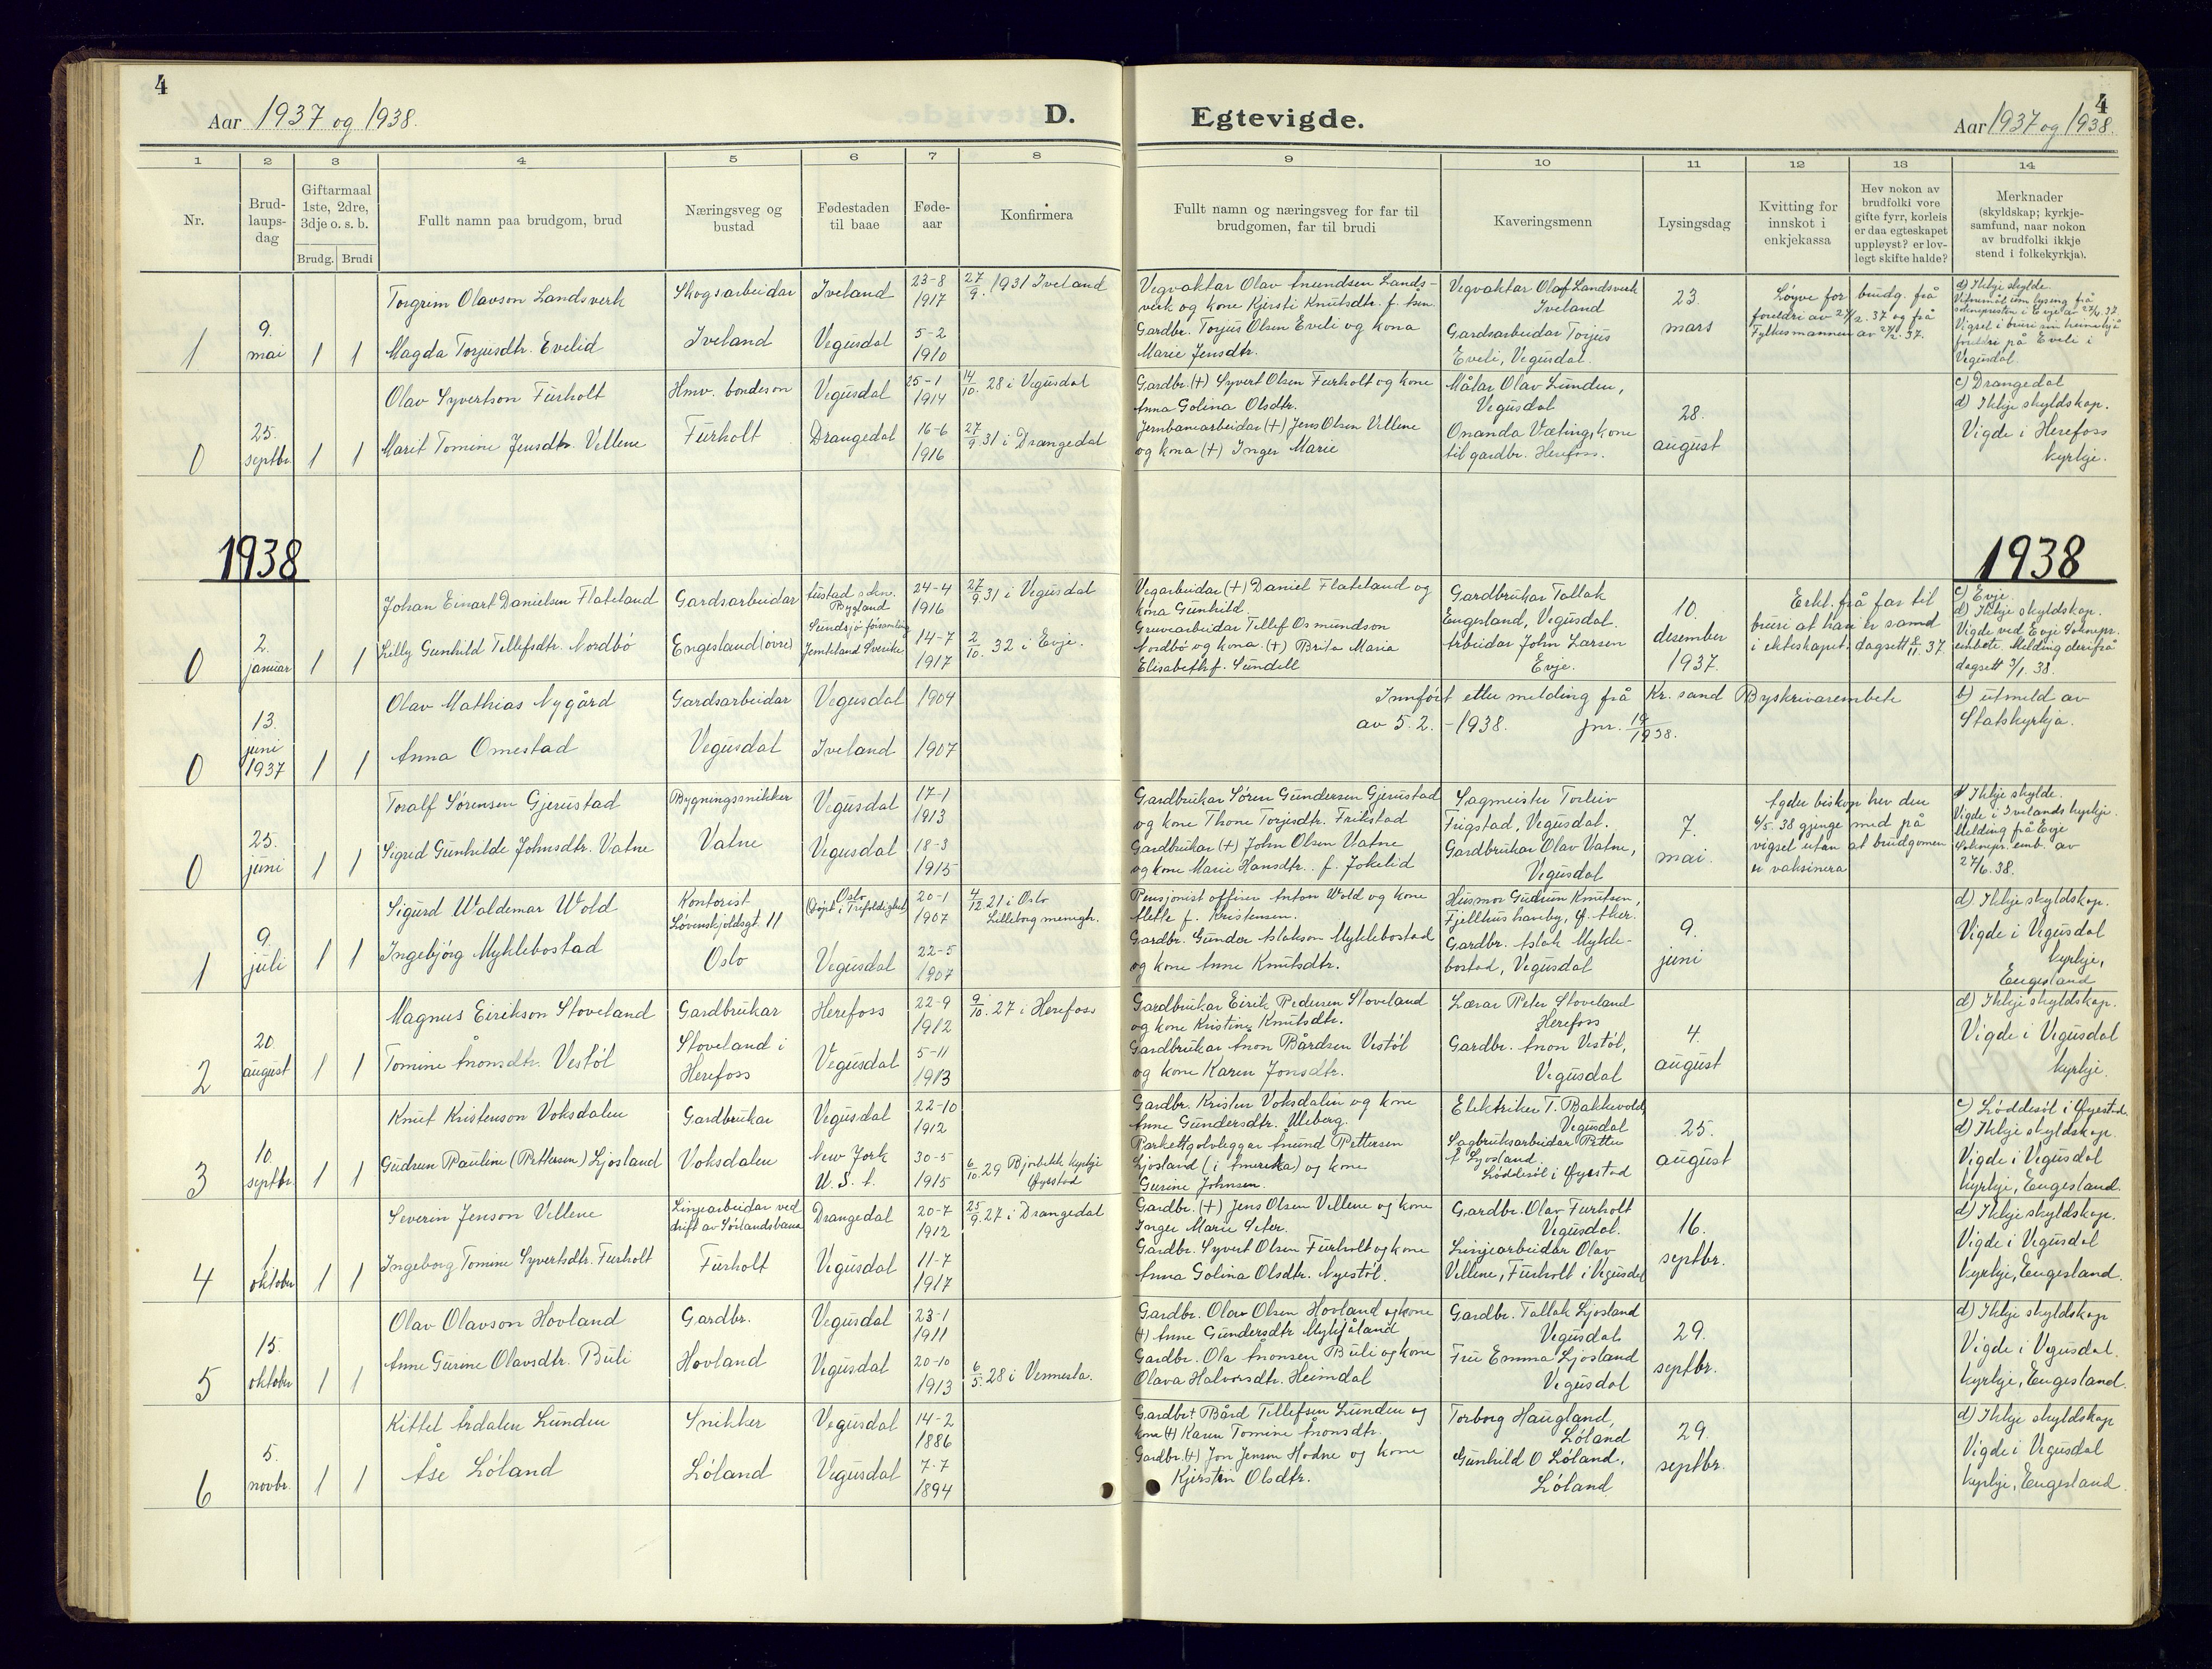 4
Aar 1937 og 1938.
D.
Egtevigde.
4
Aar 1937 og 1938.
1 2 3 4 5 6 7 8 9 10 11 12 13 14
Nr.
Brud-
laups-
dag
Giftarmaal
1ste, 2dre,
3dje o. s. b.
Brudg. Brudi
Fullt namn paa brudgom, brud
Næringsveg og
bustad
Fødestaden
til baae
Føde-
aar
Konfirmera
Fullt namn og næringsveg for far til
brudgomen, far til brudi
Kaveringsmenn
Lysingsdag
Kvitting for
innskot i
enkjekassa
Hev nokon av
brudfolki vore
gifte fyrr, korleis
er daa egteskapet
uppløyst? er lov-
legt skifte halde?
Merknader
(skyldskap; kyrkje-
samfund, naar nokon
av brudfolki ikkje
stend i folkekyrkja).
1
9.
mai
1 1
Torgrim Olavson Landsverk
Magda Torjusdtr. Evelid
Skogsarbeidar
Iveland
Iveland
Vegusdal
23-8
1917
5-2
1910
27/9. 1931 Iveland
Vegvaktar Olav Anundsen Lands-
verk og kone Kjersti Knutsdtr. f. Åsen
Gardbr. Torjus Olsen Eveli og kona
Marie Jensdtr.
Vegvaktar Olaf Landsverk
Iveland
Gardsarbeidar Torjus
Eveli, Vegusdal.
23.
mars
Løyve for brudg. frå
foreldri av 37 og frå
Fylkesmannen av 37.
d) Ikkje skylde.
Vigsel i bruri sin heim hjå
foreldri på Eveli i
Vegusdal.
0
25.
septbr.
1 1
Olav Syvertson Furholt
Marit Tomine Jensdtr. Vellene
Hmv. bondeson
Furholt
Vegusdal
Drangedal
25-1
1914
16-6
1916
14/10. 28 i Vegusdal
27/9 31 i Drangedal
Gardbr. (+) Syvert Olsen Furholt og kone
Anna Golina Olsdtr.
Jernbanearbeidar (+) Jens Olsen Vellene
og kona (+) Inger Marie
Målar Olav Lunden,
Vegusdal
Onanda Væting, kone
til gardbr. Herefoss.
28.
august
c) Drangedal
d) Ikkje skyldskap.
Vigde i Herefoss
kyrkje.
1938
1938
0
2.
januar
1 1
Johan Einart Danielsen Flateland
Lilly Gunhild Tellefsdtr. Nordbö
Gardsarbeidar
Engesland (øvre)
Austad sokn.
Bygland
Sundsjö församling
Jemteland Sverike
24-4
1916
14-7
1917
27/9 31 i Vegusdal
2/10. 32 i Evje.
Vegarbeidar (+) Daniel Flateland og
kona Gunhild.
Gruvearbeidar Tellef Osmundson
Nordbö og kona (+) Brita Maria
Elisabeth f. Sundell
Gardbrukar Tallak
Engesland, Vegusdal.
Arbeidar John Larsen
Evje.
10.
desember
1937.
Erkl. frå far til
bruri at han er samd
i ekteskapet, dagsett 8/11. 37
c) Evje.
d) Ikkje skyldskap.
Vigde ved Evje Soknepr.
embete. Melding derifrå
dagsett 3/1. 38.
0
13.
juni
1937
1 1
Olav Mathias Nygård
Anna Omestad
Gardsarbeidar
Vegusdal
Vegusdal
Iveland
1904
1907
Innført etter melding frå Kr. sand Byskrivarembete
av 5. 2. - 1938. jnr. 19/1938.
b) utmeld av
Statskyrkja.
0
25.
juni
1 1
Toralf Sørensen Gjerustad
Sigrid Gunhilde Johnsdtr. Vatne
Bygningssnikker
Vatne
Vegusdal
Vegusdal
17-1
1913
18-3
1915
Gardbrukar Sören Gundersen Gjerustad
og kone Thone Torjusdtr. Frikstad
Gardbrukar (+) John Olsen Vatne
og kone Marie Hansdtr. f. Jokelid
Sagmeister Torleiv
Frigstad, Vegusdal.
Gardbrukar Olav Vatne,
Vegusdal
7.
mai.
Agder biskop hev den
6/5. 38 gjenge med på
vigsel utan at brudgomen
er vaksinera
d) Ikkje skylde.
Vigde i Ivelands kyrkje.
Melding frå Evje
Soknepr. emb. av
27/6. 38.
1
9.
juli
1 1
Sigurd Waldemar Wold
Ingebjørg Myklebostad
Kontorist
Løvenskjoldsgt. 11
Oslo
Oslo
(döpt i Trefoldighet)
Vegusdal
20-1
1907
22-5
1907
4/12 21 i Oslo
Lilleborg menigh.
Pensjonist offiser Anton Wold og kone
Alette f. Kristensen.
Gardbr. Gunder Aslakson Myklebostad
og kone Anne Knutsdtr.
Husmor Gudrun Knutsen,
Fjellhus haveby, Ø. Aker.
Gardbr. Aslak Mykle-
bostad, Vegusdal
9.
juni
d) Ikkje skyldskap.
Vigde i Vegusdal
kyrkje,
Engesland
2
20.
august
1 1
Magnus Eirikson Stoveland
Tomine Ånonsdtr. Vestöl
Gardbrukar
Stoveland i
Herefoss
Herefoss
Vegusdal
22-9
1912
5-11
1913
9/10. 27 i Herefoss
Gardbrukar Eirik Pedersen Stoveland
og kone Kristine Knutsdtr.
Gardbrukar Ånon Bårdsen Vestöl
og kone Karen Jonsdtr.
Lærar Peter Stoveland
Herefoss
Gardbr. Ånon Vestöl,
Vegusdal
4.
august
d) Ikkje skyldskap.
Vigde i Vegusdal
kyrkje.
3
10.
septbr.
1 1
Knut Kristenson Voksdalen
Gudrun Pauline (Pettersen) Ljosland
Gardbrukar
Voksdalen
Vegusdal
New Jork
U. S. A.
22-10
1912
30-5
1915
6/10. 29 Bjorbekk kyrkje
Øyestad
Gardbr. Kristen Voksdalen og kone
Anne Gundersdtr. Uleberg.
Parkettgolvleggar Ånund Pettersen
Ljosland (i Amerika) og kone
Gurine Johnsen.
Elektriker T. Bakkevold,
Vegusdal
Sagbruksarbeidar Petter
A Ljosland.
Løddesöl i Øyestad
25.
august
c) Løddesöl i Øyestad.
d) Ikkje skyldskap.
Vigde i Vegusdal
kyrkje, Engesland.
4
1
oktober
1 1
Severin Jenson Vellene
Ingeborg Tomine Syvertsdtr. Furholt
Linjearbeidar ved
drift av Sørlandsbana
Furholt
Drangedal
Vegusdal
20-7
1912
11-7
1917
25/9. 27 i Drangedal
Gardbr. (+) Jens Olsen Vellene og kone
Inger Marie Seter.
Gardbr. Syvert Olsen Furholt og kone
Anna Golina Olsdtr. Nyestöl.
Gardbr. Olav Furholt
Vegusdal.
Linjearbeidar Olav
Vellene, Furholt i Vegusdal
16.
septbr.
d) Ikkje skyldskap.
Vigde i Vegusdal
kyrkje, Engesland.
5
15.
oktober
1 1
Olav Olavson Hovland
Anne Gurine Olavsdtr. Buli
Gardbr.
Hovland
Vegusdal
Vegusdal
23-1
1911
20-10
1913
6/5. 28 i Vennesla.
Gardbr. Olav Olsen Hovland og kone
(+) Anne Gundersdtr Mykjåland
Gardbr. Ola Ånonsen Buli og kone
Olava Halvorsdtr. Heimdal
Gardbr. Tallak Ljosland
Vegusdal.
Fru Emma Ljosland
Vegusdal
29.
septbr.
d) Ikkje skyldskap
Vigde i Vegusdal.
kyrkje, Engesland.
6
5.
novbr.
1 1
Kittel Ardalen Lunden
Åse Løland
Snikker
Løland
Vegusdal
Vegusdal
14-2
1886
7-7
1894
Gardbr + Bård Tellefsen Lunden og
kone (+) Karen Tomine Ånonsdtr.
Gardbr. (+) Jon Jensen Hodne og kone
Kjersten Olsdtr.
Torborg Haugland,
Løland
Gunhild O Løland,
Løland
29.
septbr.
d) Ikkje skyldskap
Vigde i Vegusdal
kyrkje, Engesland